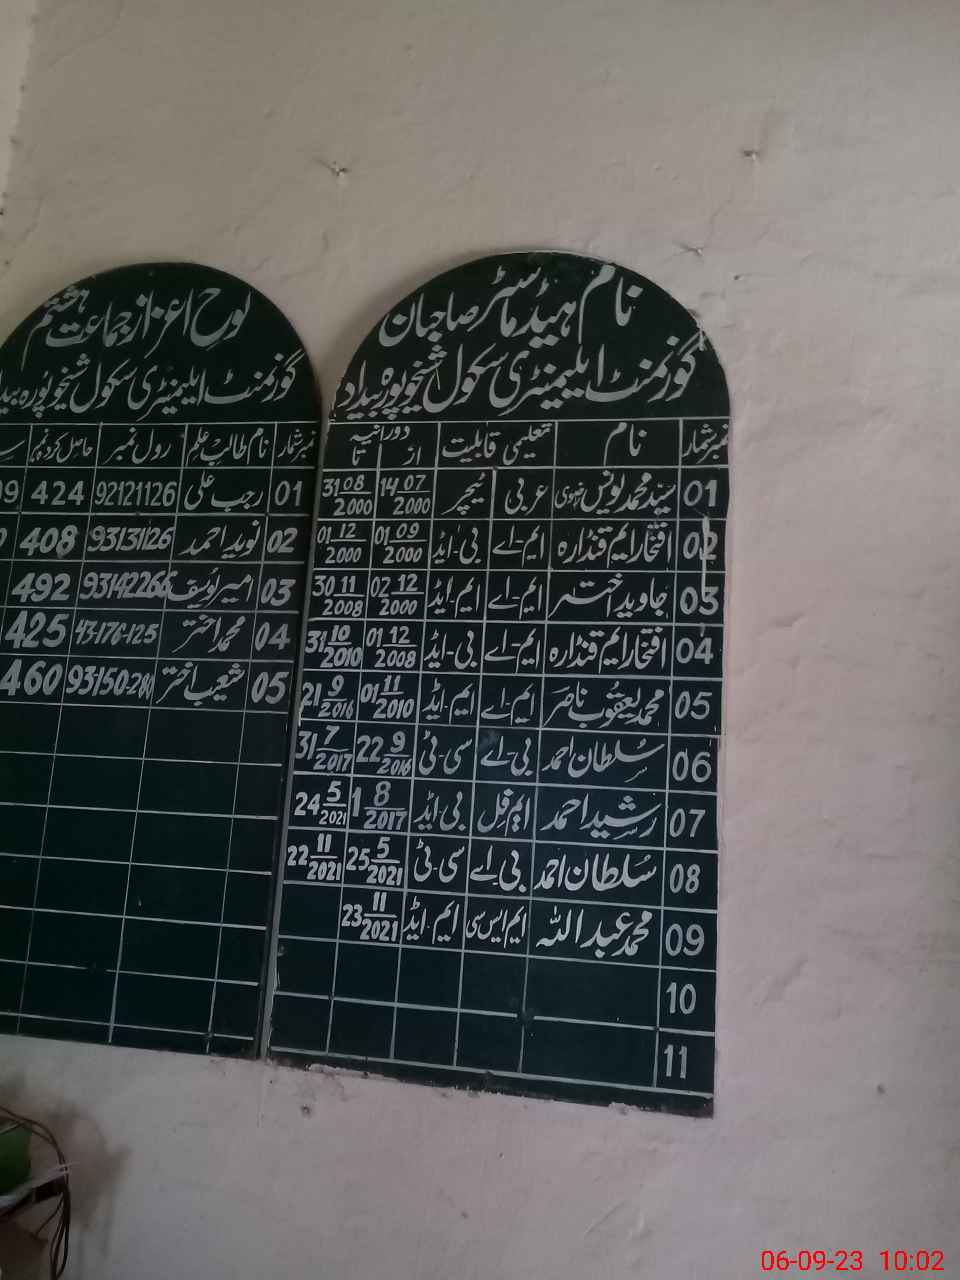 نام ہیڈ ماسٹر صاحبان
گورنمنٹ ایلیمنٹری سکول شیخوپورہ بیداد
نمبر شمار نام تعلیمی قابلیت دورانیہ
از تا
01 سید محمد یونس عربی ٹیچر 14 07/2000 31 08/2000
02 افتخار ایم قندارہ ایم-اے بی-ایڈ 01 09/2000 01 12/2000
03 جاوید اختر ایم-اے ایم-ایڈ 02 12/2000 30 11/2008
04 افتخار ایم قنڈارہ ایم-اے بی-ایڈ 01 12/2008 31 10/2010
05 محمد یعقوب ناصر ایم-اے ایم-ایڈ 01 11/2010 21 9/2016
06 سُلطان احمد بی-اے سی-ٹی 22 9/2016 31 7/2017
07 رشید احمد ایم فل بی-ایڈ 1 8/2017 24 5/2021
08 سُلطان احمد بی-اے سی-ٹی 25 5/2021 22 11/2021
09 محمد عبد اللہ ایم ایس سی ایم-ایڈ 23 11/2021
10
11
لوح اعزاز جماعت ہشتم
گورنمنٹ ایلیمنٹری سکول شیخوپورہ
نمبر شمار نام طالب علم رول نمبر حاصل کردہ نمبر
01 رجب علی 92121126 424
02 نوید احمد 93131126 408
03 امیر یوسف 93142266 492
04 محمد اختر 425
05 شعیب اختر 460
06-09-23 10:02